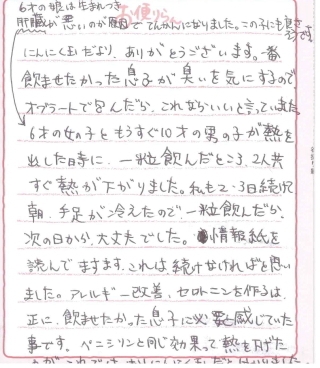 6才の娘は生まれつき
肝臓が悪いのが原因でてんかんになりました。この子にも良さそうです。
お便り
にんにく玉だより、ありがとうございます。一番
飲ませたかった息子が臭いを気にするので、
オブラートで包んだら、これならいいと言っていました。
6才の女の子ともうすぐ10才の男の子が熱を
出した時に、一粒飲んだところ、2人共
すぐ熱が下がりました。私も2・3日続けて
朝、手足が冷えたので、一粒飲んだら、
次の日から、大丈夫でした。情報紙を
読んでますます、これは続けなければと思い
ました。アレルギー改善、セロトニンを作るは、
正に、飲ませたかった息子に必要と感じていた
事です。ペニシリンと同じ効果って熱を下げた